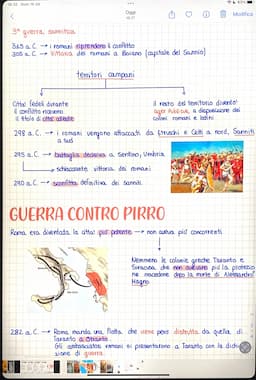 Oggi
18:27
Modifica
3ª guerra sannitica
305 a.C. → vittoria dei romani a Boiano (capitale del Sannio)
territori campani
Città fedeli durante
il conflitto ricevono
il titolo di città alleate
il resto del territorio diventò
ager publicus, a disposizione dei
coloni romani e latini
298 a.C. → i romani vengono attaccati da Etruschi e Celti a nord, Sanniti
a sud
295 a.C. → battaglia decisiva a Sentino, Umbria
schiacciante vittoria dei romani
290 a.C. → sconfitta definitiva dei sanniti
GUERRA CONTRO PIRRO
Roma era diventata la città più potente → non aveva più concorrenti
Nemmeno le colonie greche Taranto e
Siracusa che non avevano più la protezio
ne macedone dopo la morte di Alessandro
Magno
282 a.C. → Roma manda una flotta che viene però distrutta da quella di
Taranto
Gli ambasciatori romani si presentarono a Taranto con la dichiara
zione di guerra